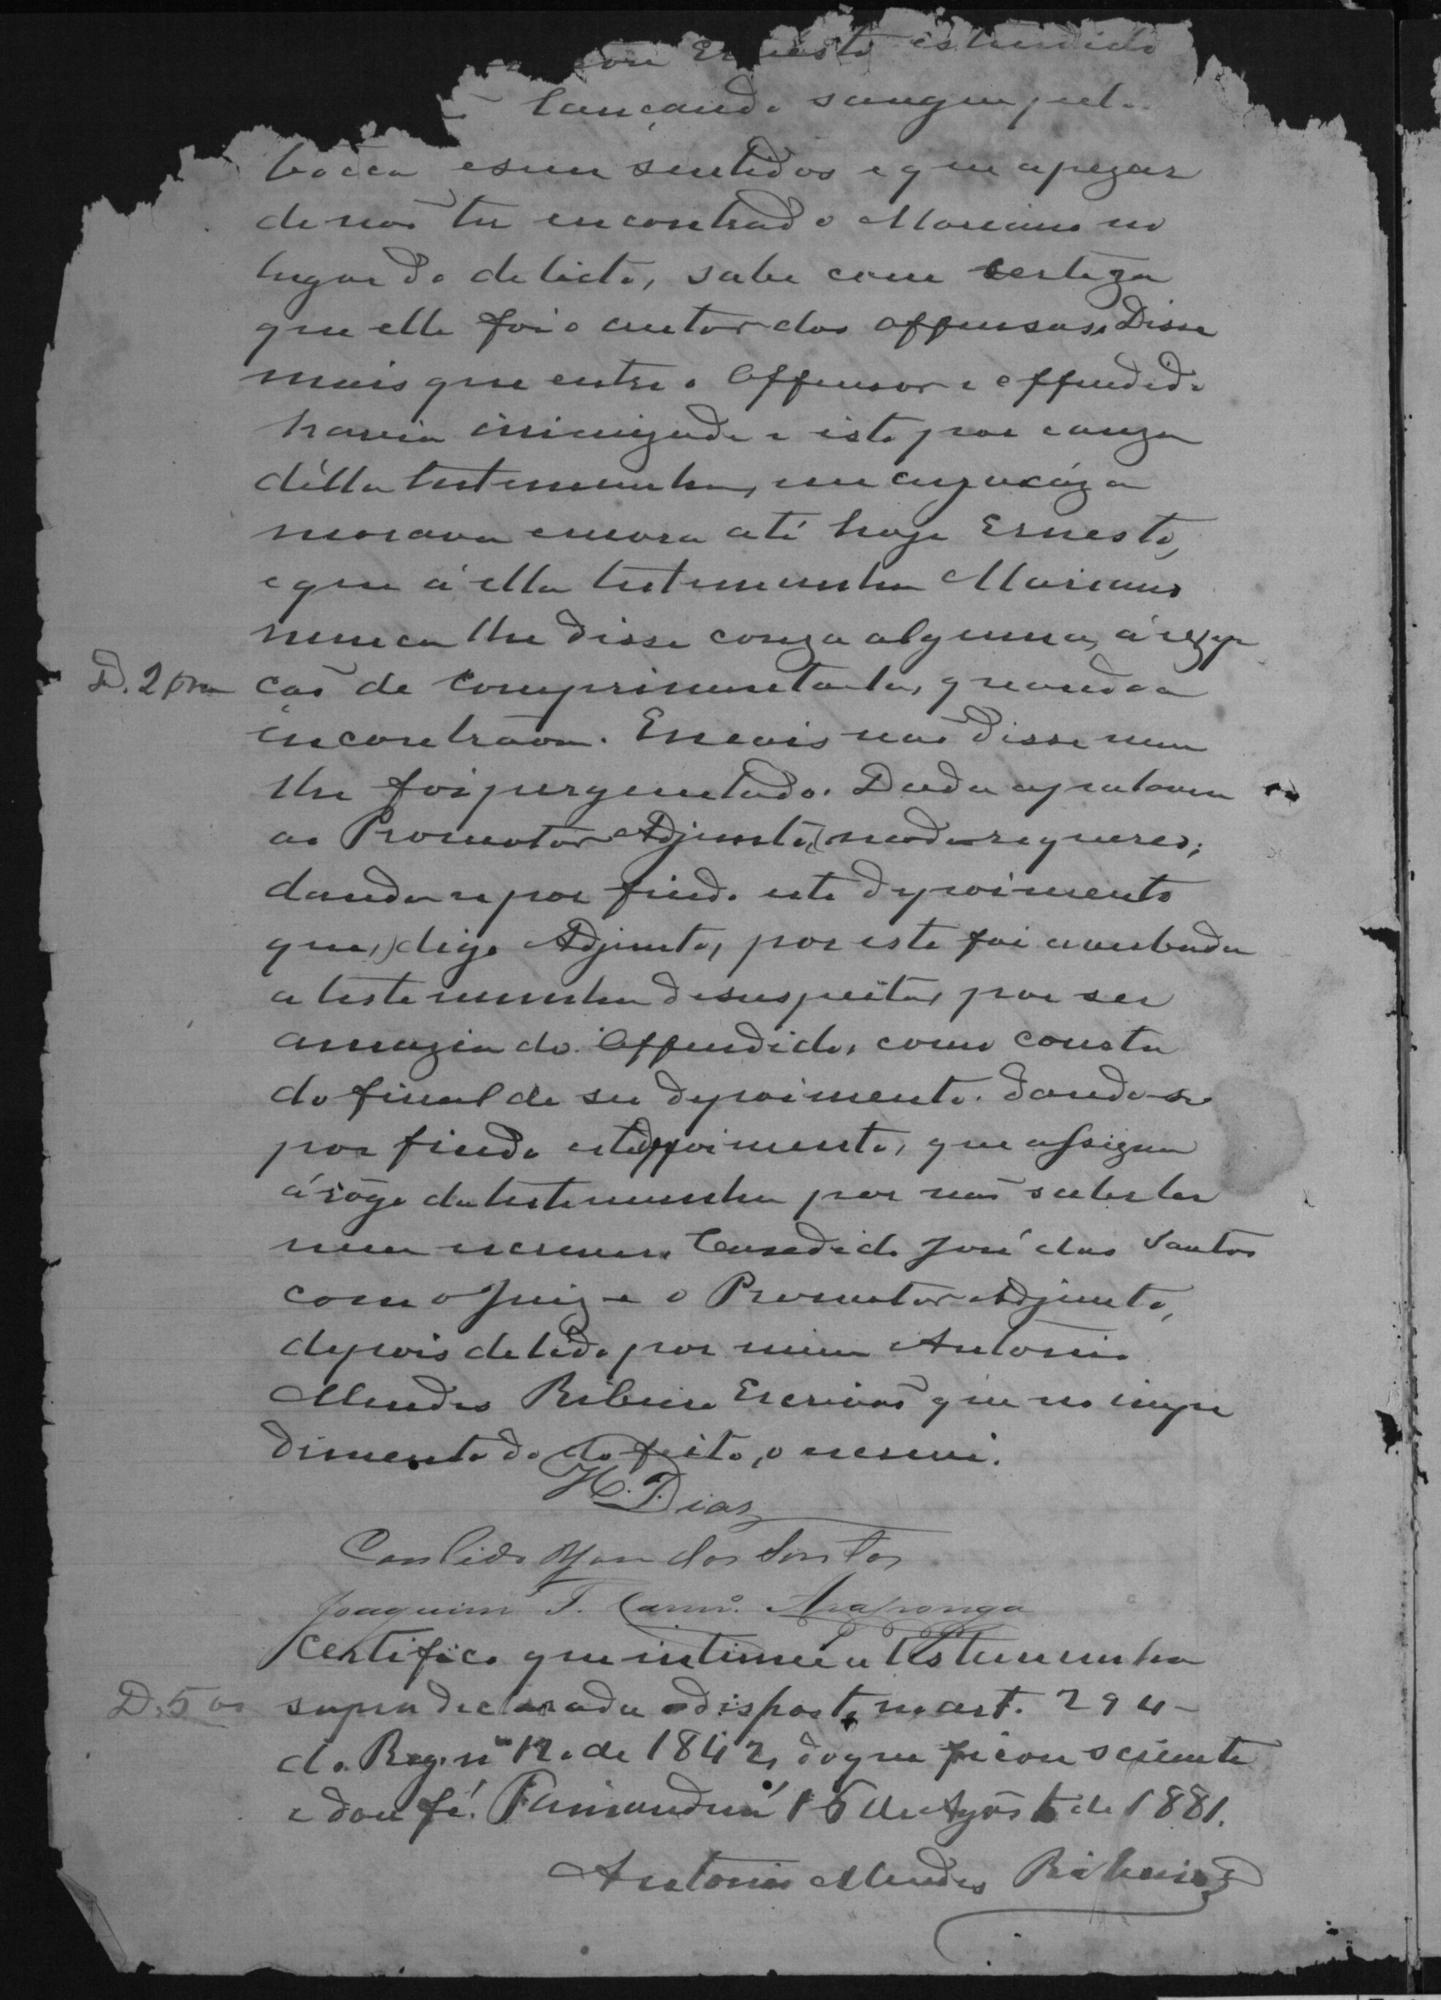 Ernesto estendido
lançando sangue pela
bocca e sem sentidos e que apezar
de não ter encontrado Mariano no
lugar do delicto, sabe com certeza
que elle foi o autor das offensas. Disse
mais que entre o Offensor e offendido
havia inimizade e isto por cauza
d'élla testemunha, em cuja cáza
morava e mora até hoje Ernesto,
e que á ella testemunha Mariano
nunca lhe disse couza alguma, á
D. 2 cão de comprimenta-la, quando a
encontrava. E mais não disse nem
lhe foi perguntado. Dada a palavra
ao Promotor Adjunto, nada requereo;
dando-se por findo este depoimento
que, digo Adjunto, por este foi contestada
a testemunha de suspeita, por ser
amazia do Offendido, como consta
do final de seu depoimento. Dando-se
por findo este depoimento, que assigna
á rôgo da testemunha por não saber ler
nem escrever Candido José dos Santos
com o Juiz e o Promotor Adjunto,
depois de lido por mim Antonio
Mendes Ribeiro Escrivão que no impe
dimento do do feito, o escrevi.
H. Dias
Candido José dos Santos
Joaquim T. Carnº. Araponga
Certifico que intimei a testemunha
D. 5 supra declarada o disposto no art. 294
do Reg. nº 120 de 1842, do que ficou sciente
e dou fé. 15 de Agosto de 1881.
Antonio Mendes Ribeiro